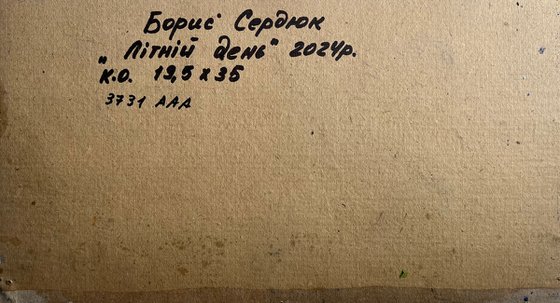 Борис Сердюк
„Літній день" 2024р.
к.о. 19,5 х 35
3731 ААА